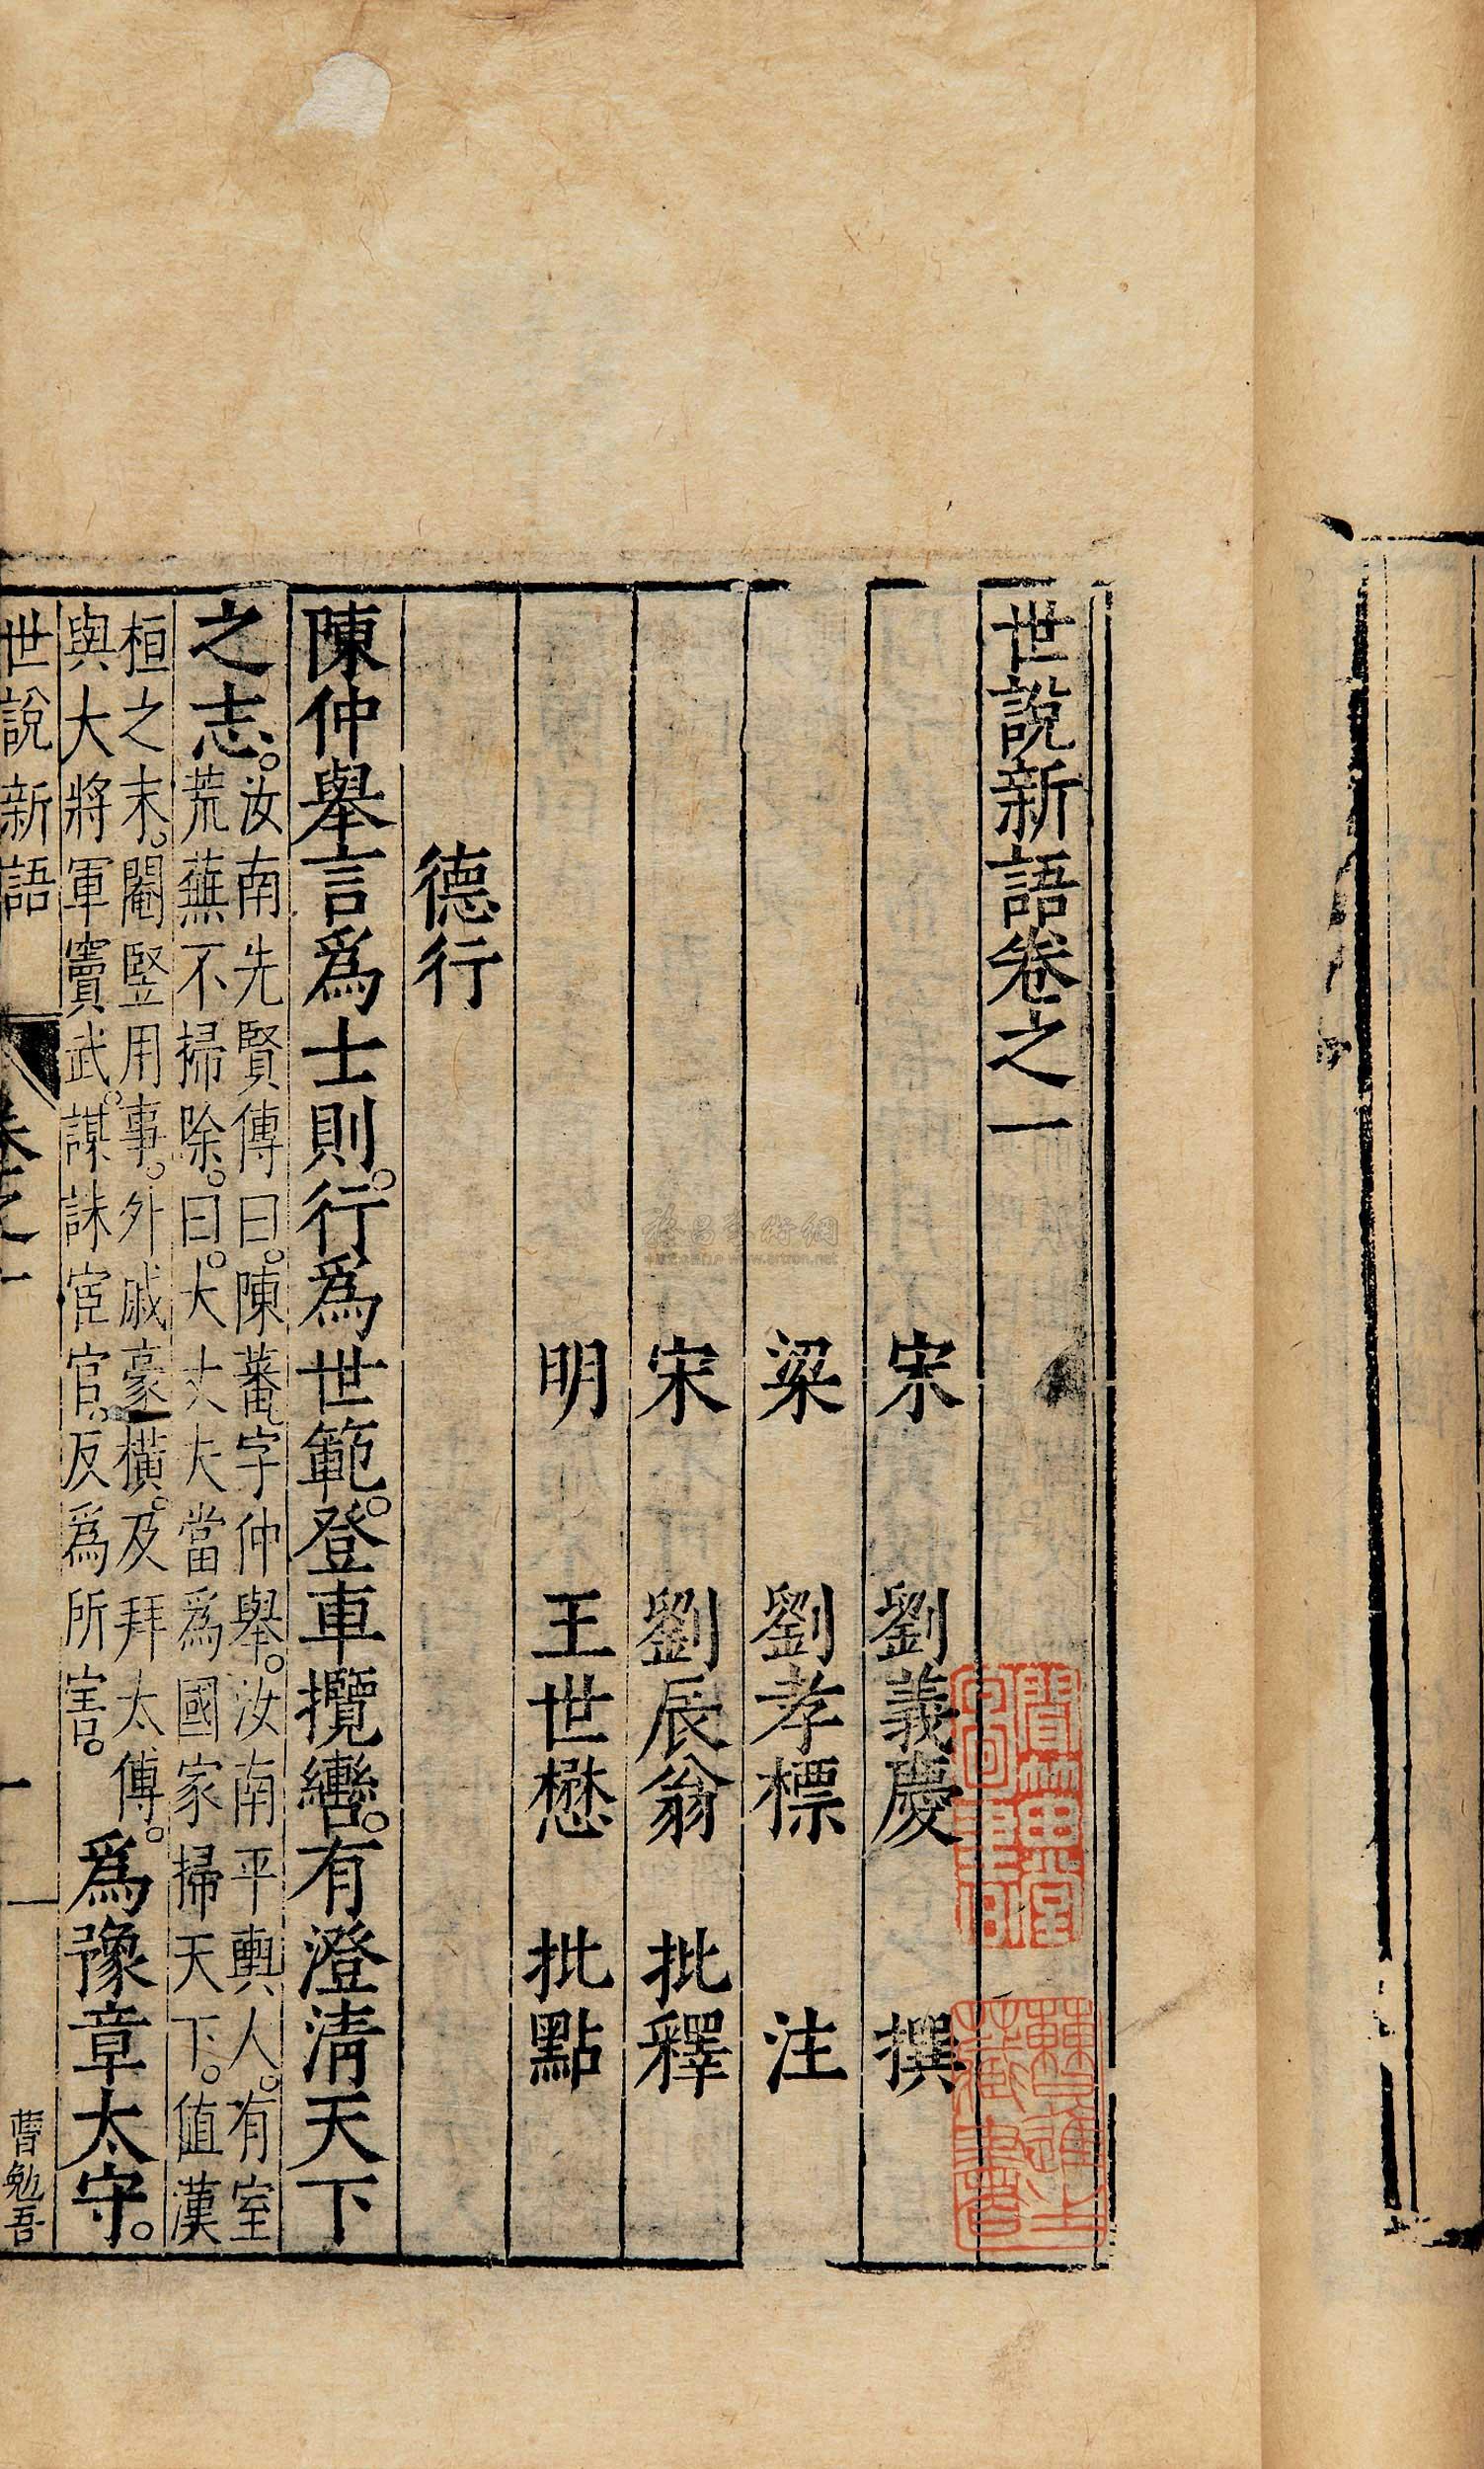 世說新語卷之一
宋 劉義慶 撰
梁 劉孝標 注
宋 劉辰翁 批釋
明 王世懋 批點
德行
陳仲舉言爲士則。行爲世範。登車攬轡。有澄清天下
之志。
汝南先賢傳曰。陳蕃字仲舉。汝南平輿人。有室
荒蕪不掃除。曰。大丈夫當爲國家掃天下。值漢
桓之末。閹竪用事。外戚豪橫。及拜太傅。
與大將軍竇武。謀誅宦官。反爲所害。
爲豫章太守。
世說新語 卷之一 一 曹勉吾